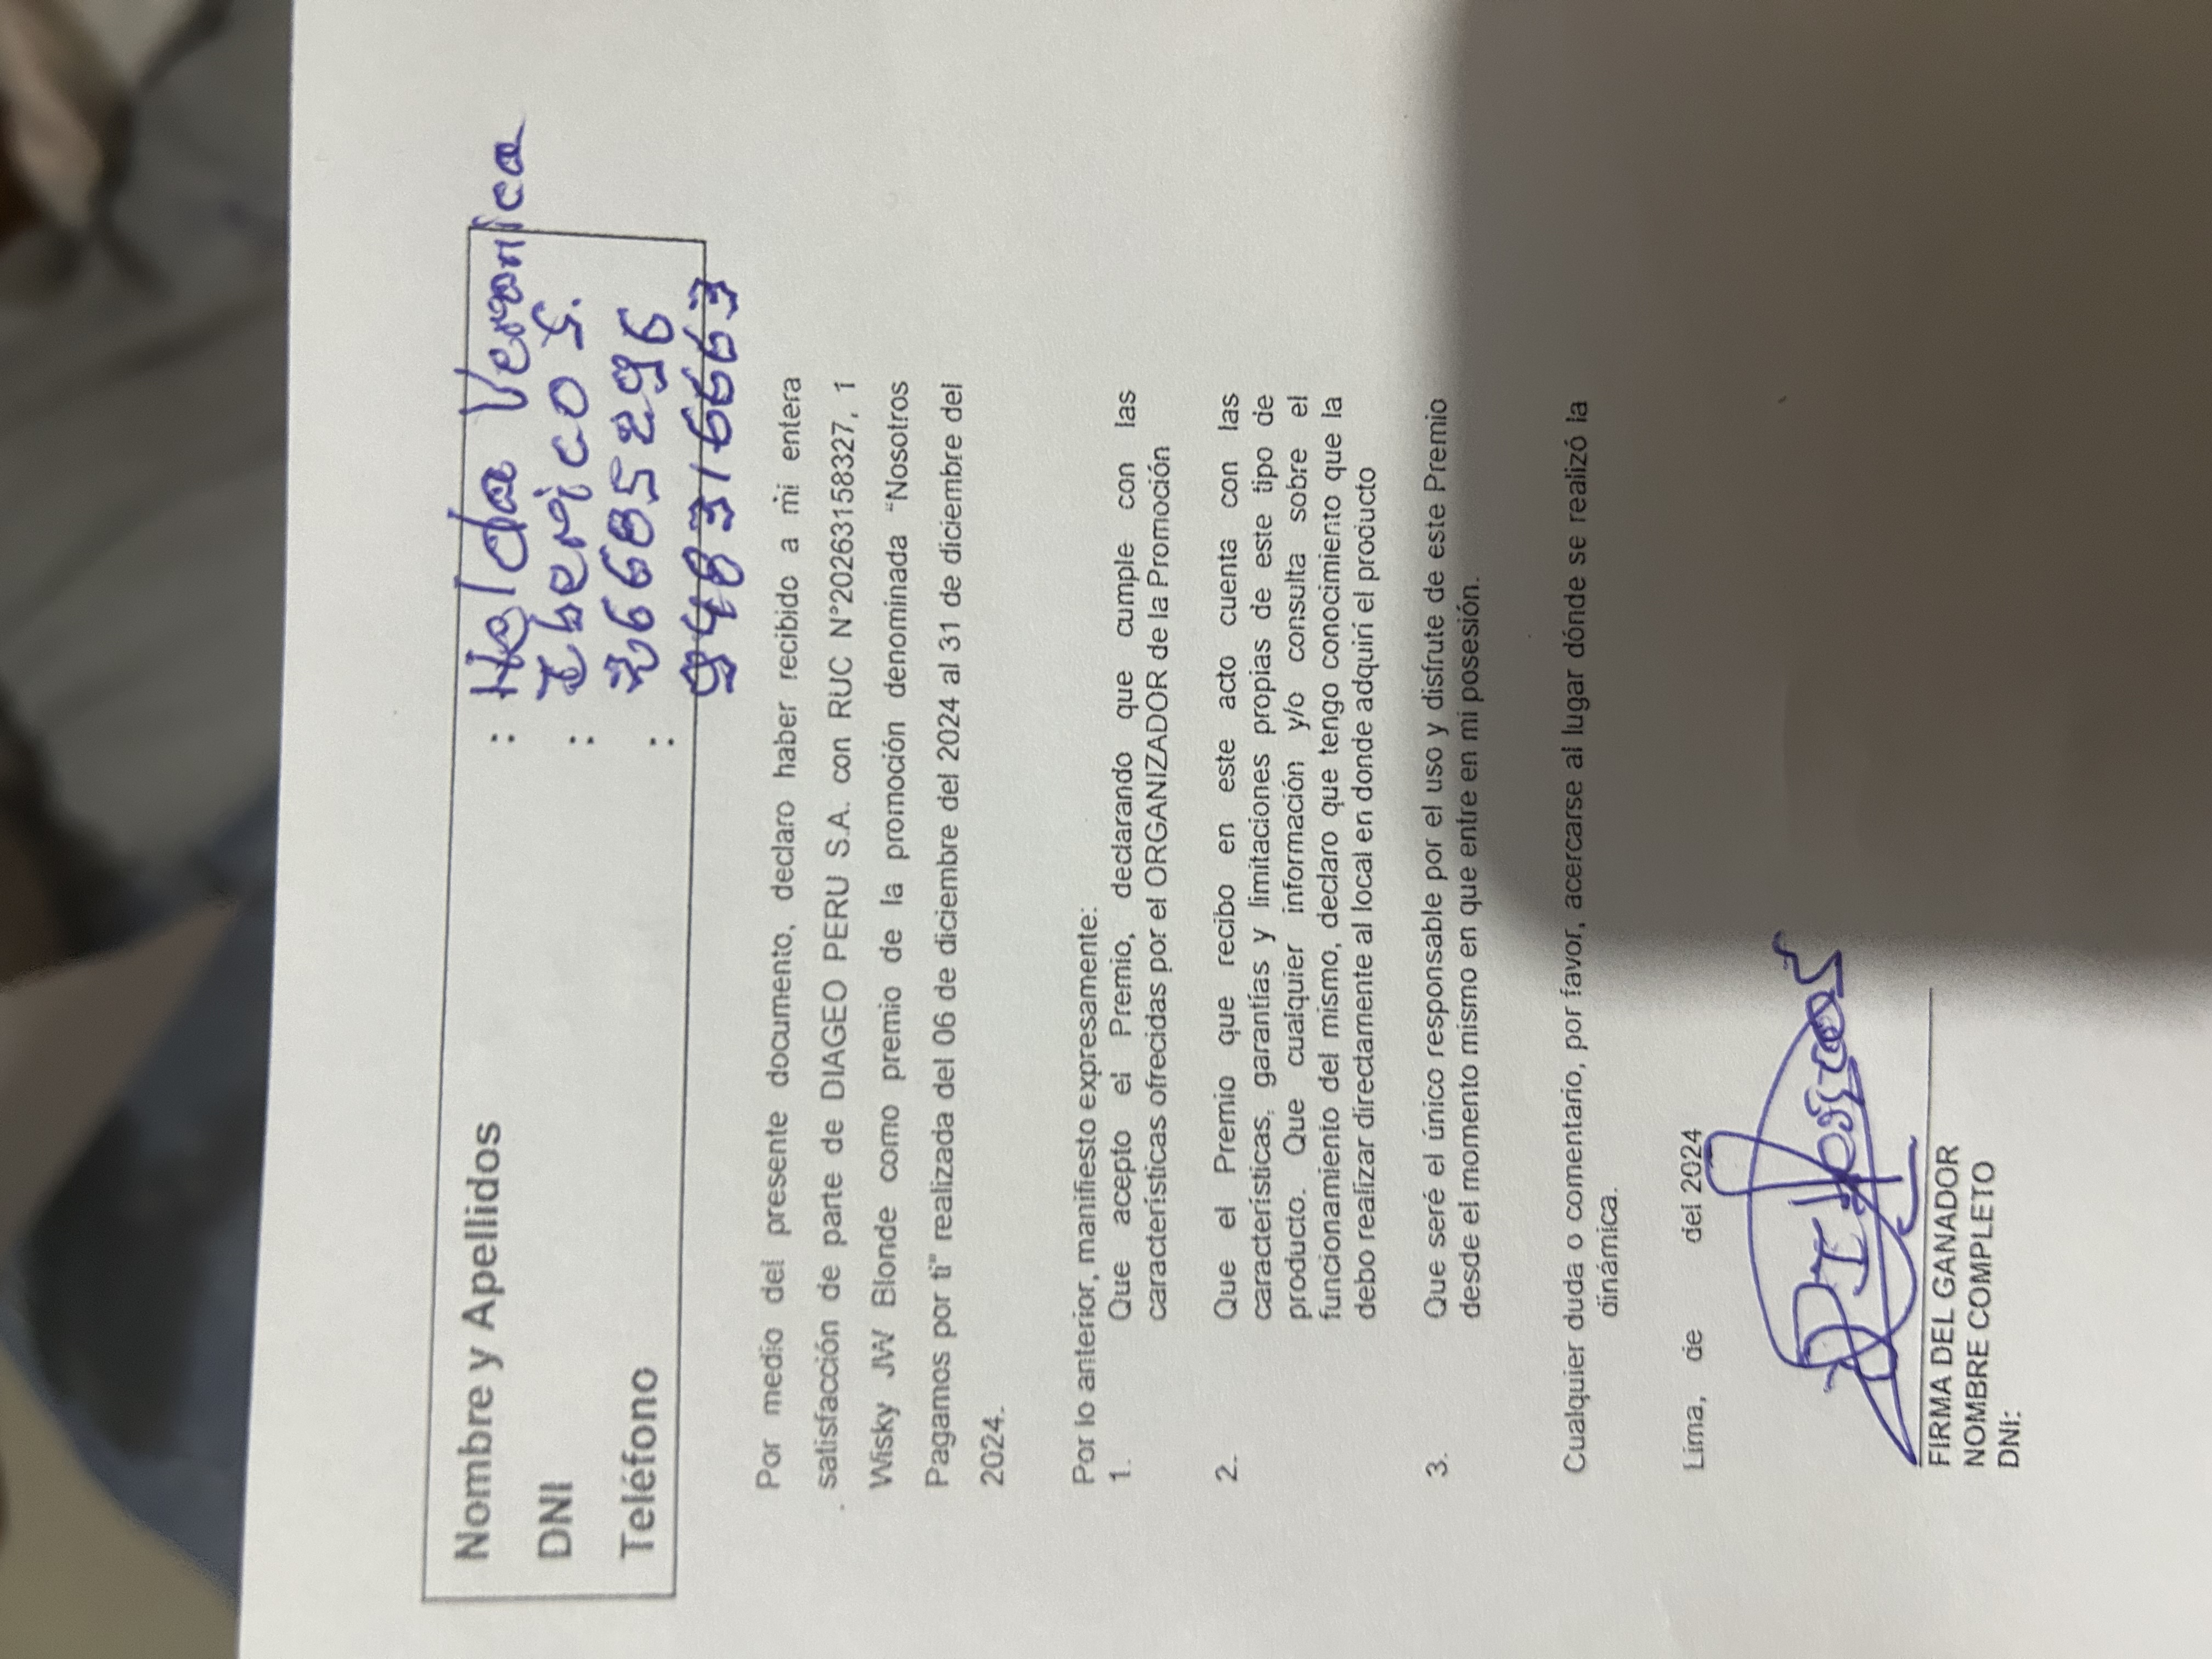 Nombre y Apellidos : Helda Veronica
DNI : Iberico S.
Teléfono : 26685296
948316663
Por medio del presente documento, declaro haber recibido a mi entera
satisfacción de parte de DIAGEO PERU S.A. con RUC N°20263158327, 1
Wisky JW Blonde como premio de la promoción denominada “Nosotros
Pagamos por ti” realizada del 06 de diciembre del 2024 al 31 de diciembre del
2024.
Por lo anterior, manifiesto expresamente:
1. Que acepto el Premio, declarando que cumple con las
características ofrecidas por el ORGANIZADOR de la Promoción
2. Que el Premio que recibo en este acto cuenta con las
características, garantías y limitaciones propias de este tipo de
producto. Que cualquier información y/o consulta sobre el
funcionamiento del mismo, declaro que tengo conocimiento que la
debo realizar directamente al local en donde adquirí el producto
3. Que seré el único responsable por el uso y disfrute de este Premio
desde el momento mismo en que entre en mi posesión.
Cualquier duda o comentario, por favor, acercarse al lugar dónde se realizó la
dinámica.
Lima, de del 2024
FIRMA DEL GANADOR
NOMBRE COMPLETO
DNI: